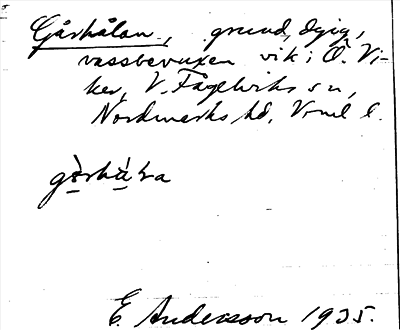 Gåshålan, grund, dyig,
vassbevuxen vik i Ö. Vi-
ker, V. Fågelviks sn,
Nordmarks hd, Vrml l.
E. Andersson 1935.